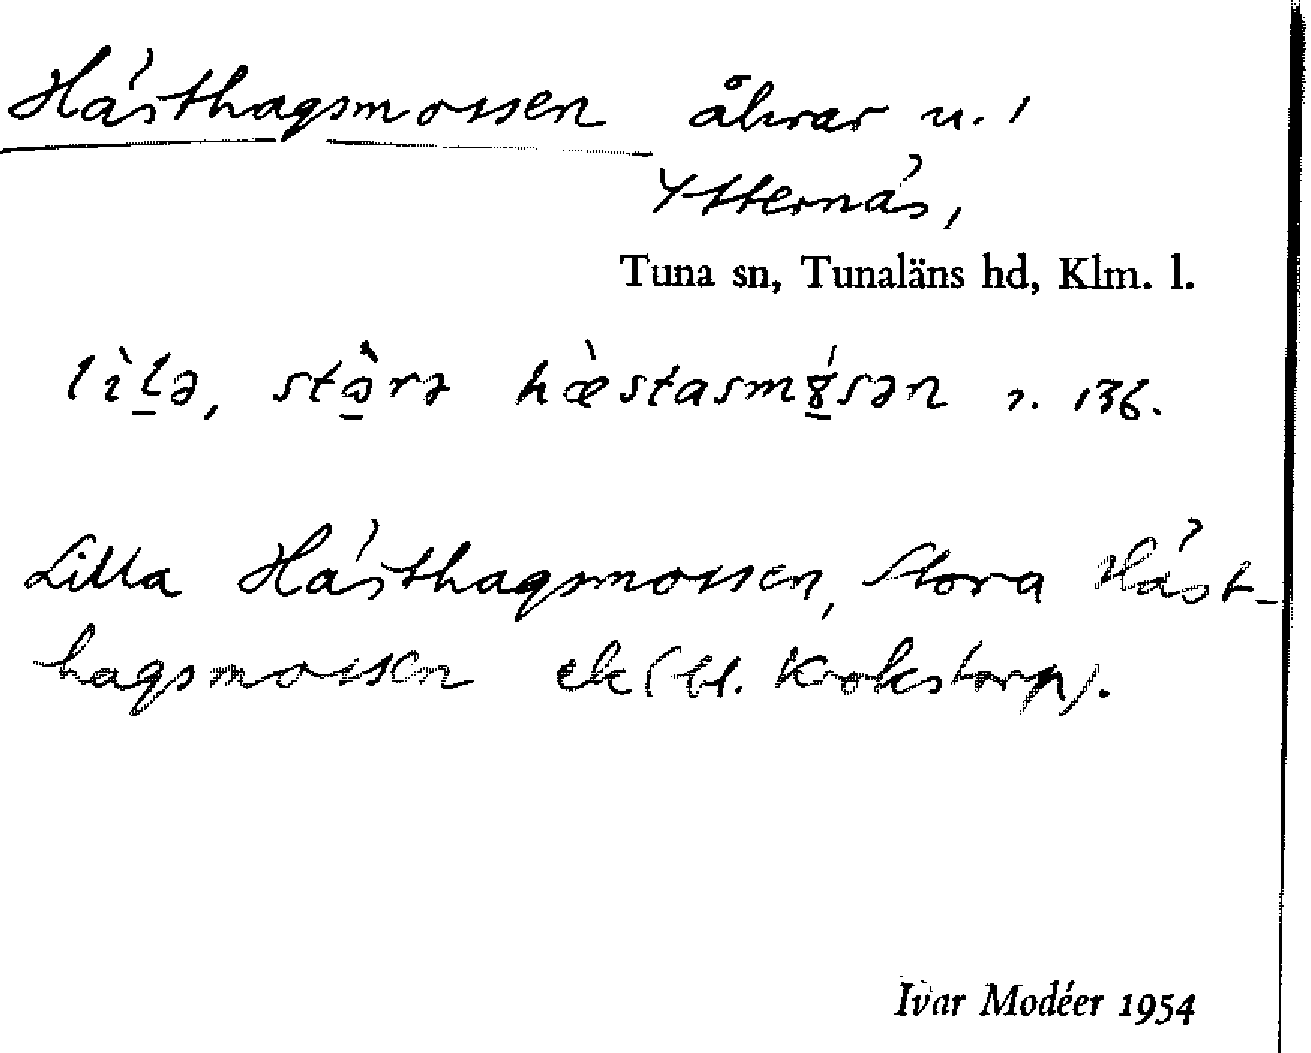 Hästhagsmossen åkrar u.
Ytternäs,
Tuna sn, Tunaläns hd, Klm. l.
lìlə, stòrə hæ̀stasmósən 136.
Lilla Hästhagsmossen, Stora Häst-
hagsmossen ek (bl. Krokstorp).
Ivar Modéer 1954